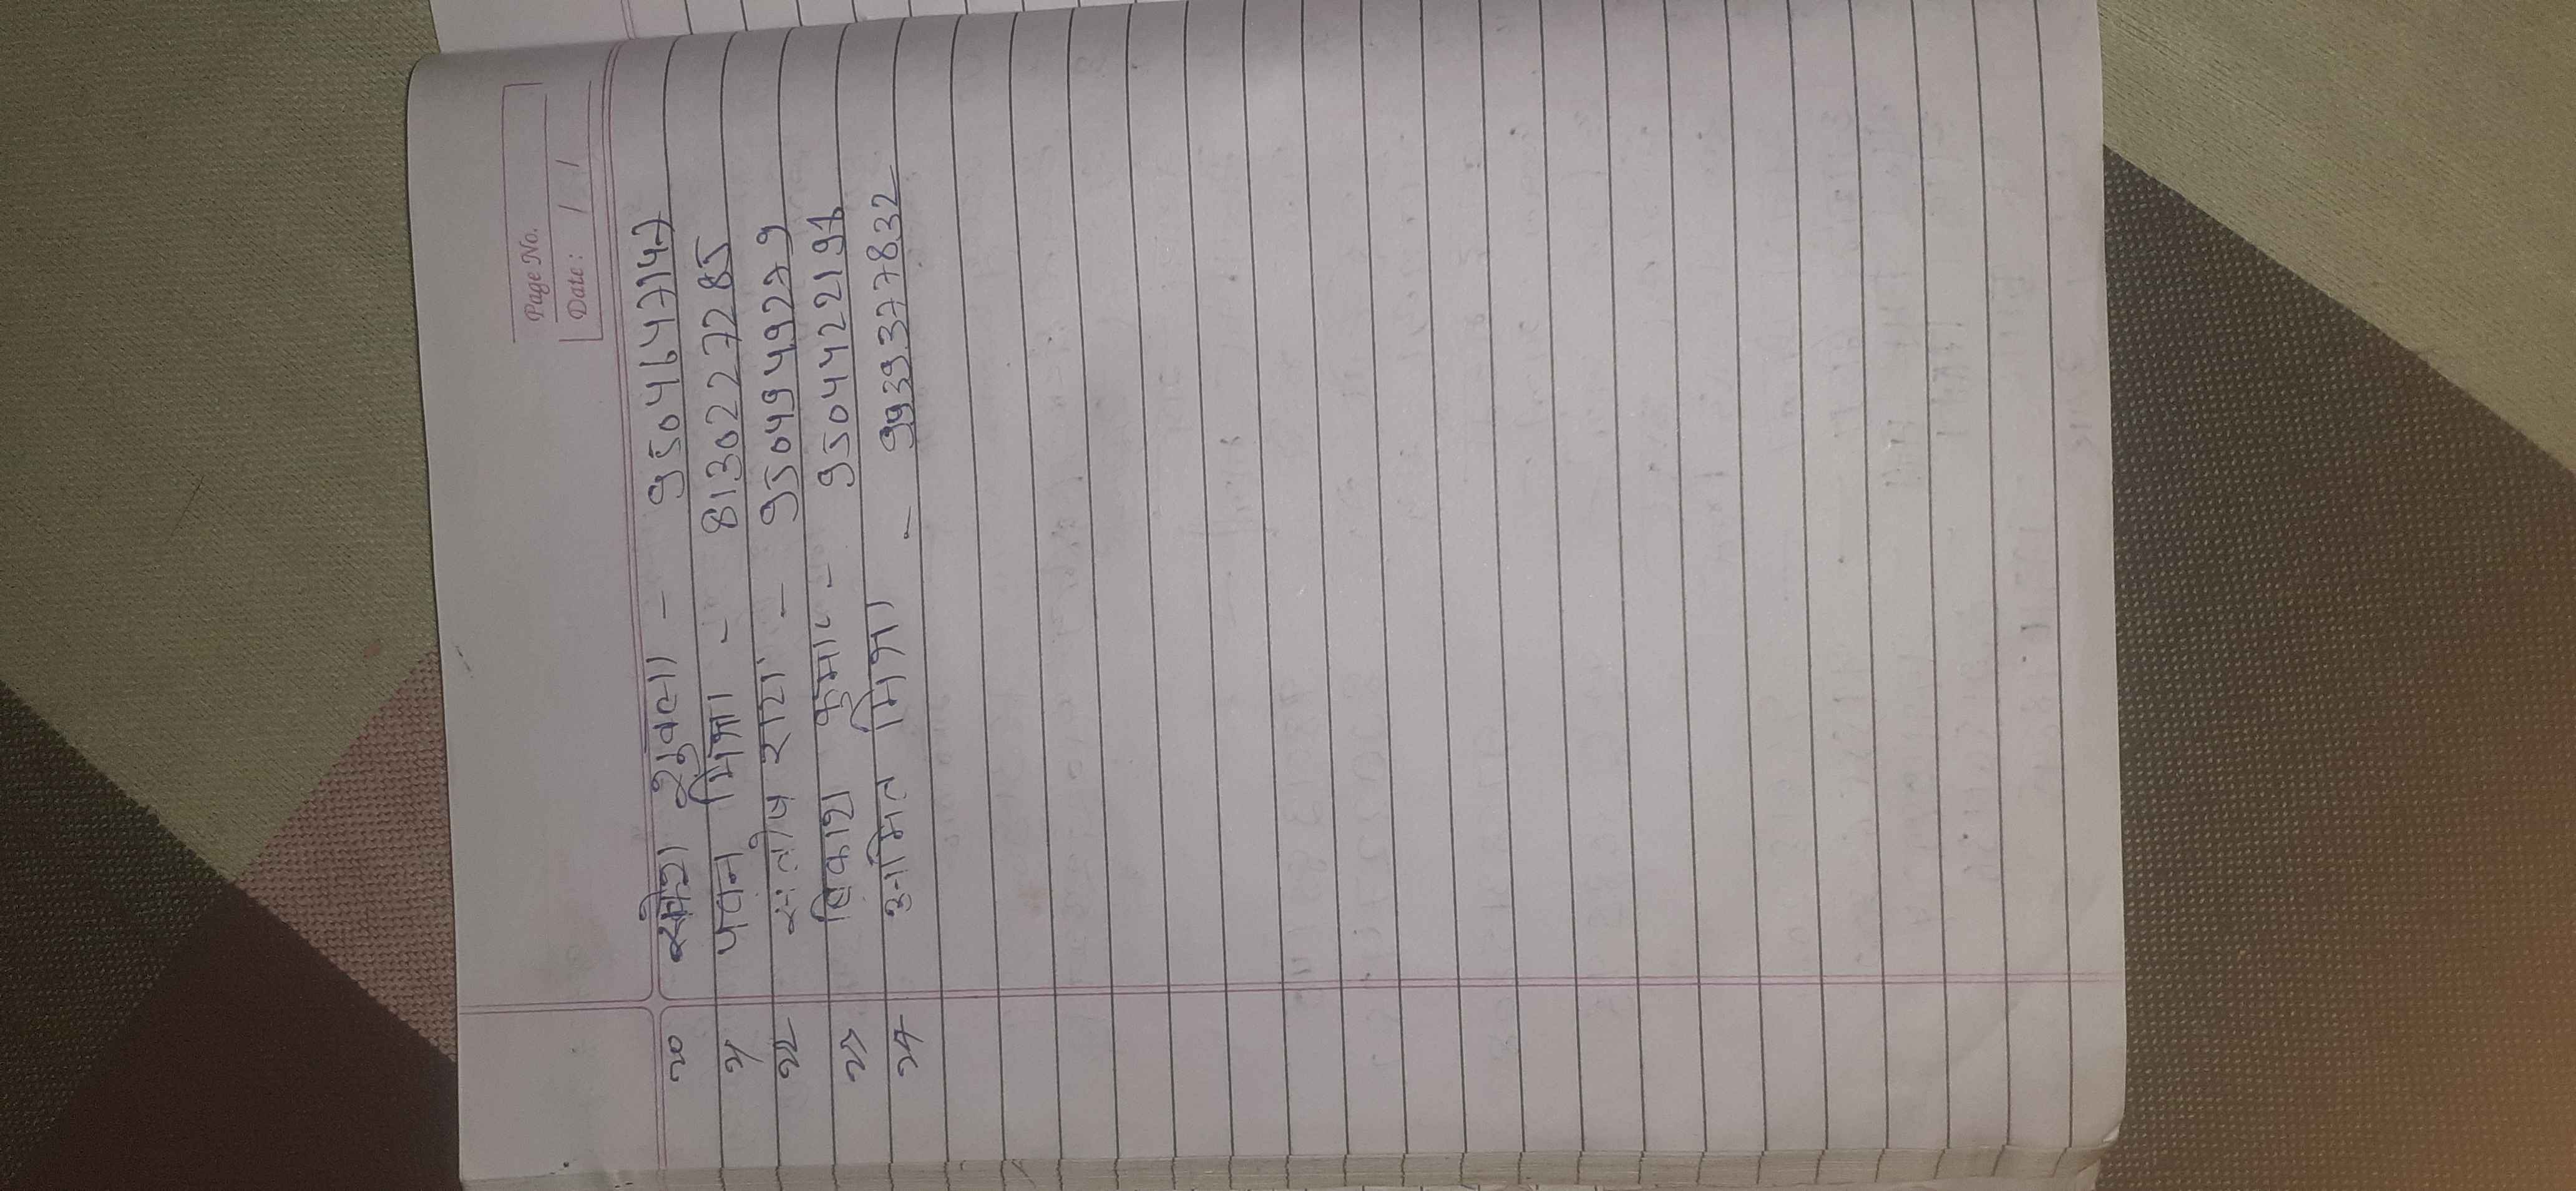 Page No.
Date: / /
२० रमेश शुक्ला - 9504647147
२१ पवन मिश्रा - 8130227285
२२ संतोष राय - 9504949279
२३ विकाश कुमार - 950442219
२४ अमित मिश्रा - 9939377832